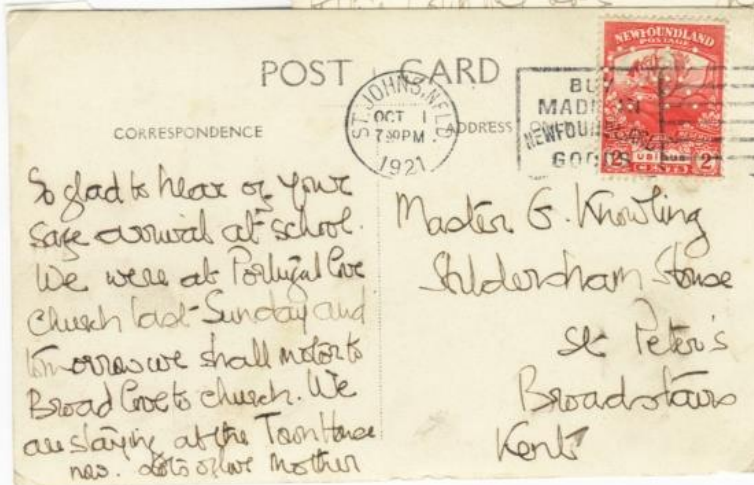 POST CARD
CORRESPONDENCE
ADDRESS
ST. JOHN'S, NFLD.
OCT 1
7 30 PM
1921
BUY
MADE IN
NEWFOUNDLAND
GOODS
NEWFOUNDLAND
POSTAGE
2 UBIQUE 2
CENTS
So glad to hear of your
safe arrival at school.
We were at Portugal Cove
Church last Sunday and
tomorrow we shall motor to
Broad Cove to church. We
are staying at the Town House
now. Lots of love Mother
Master G. Knowling
Hildersham House
St Peter's
Broadstairs
Kent